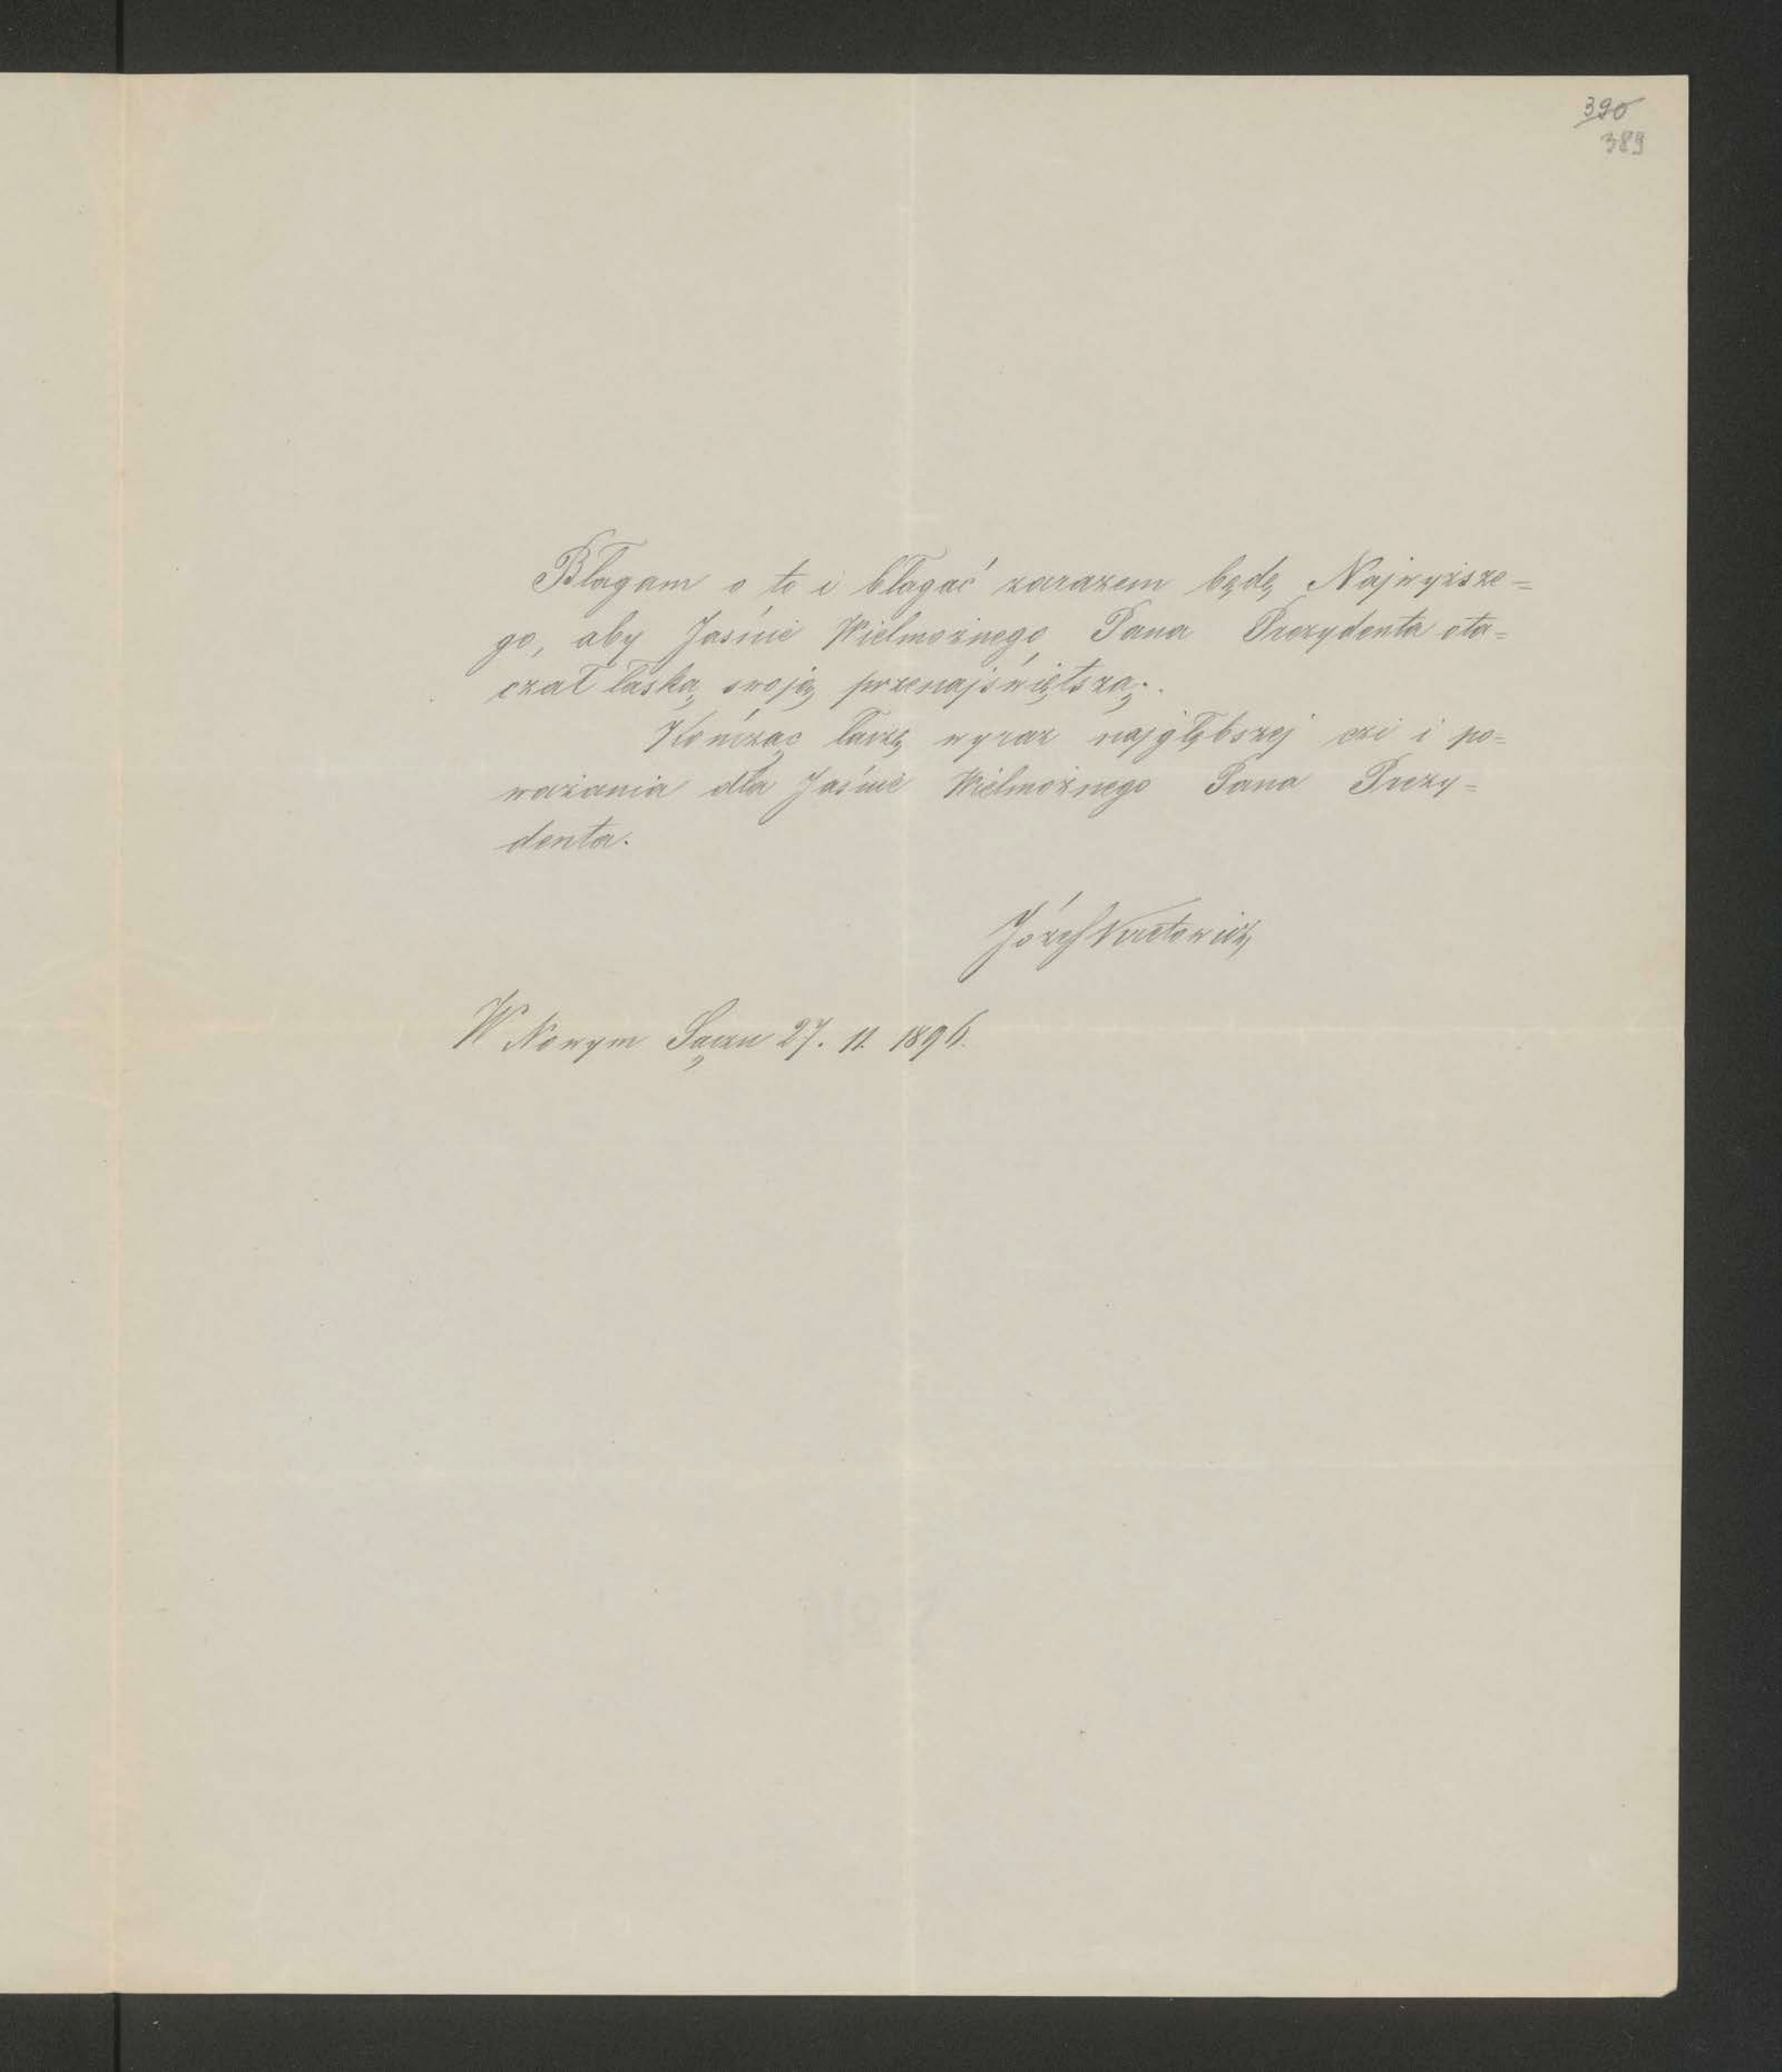 390
389
Błagam o to i błagać zarazem będę Najwyższe=
go, aby Jaśnie Wielmożnego Pana Prezydenta ota=
czał łaską swoją przenajświętszą.
Kończąc łączę wyraz najgłębszej czi i po=
ważania dla Jaśnie Wielmożnego Pana Prezy=
denta.
Józef
W Nowym Sączu 27. 11. 1896.